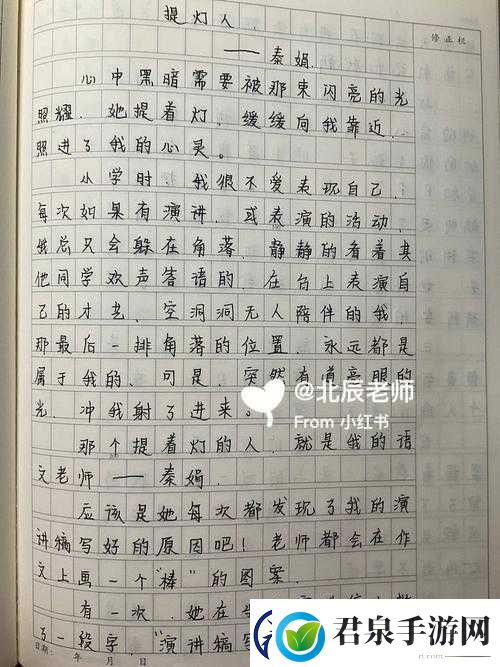 提灯人.
——秦娟.
修正栏
心中黑暗需要被那束闪亮的光
照耀. 她提着灯, 缓缓向我靠近.
照进了我的心灵。
小学时. 我很不爱表现自己.
每次如果有演讲. 或表演的活动.
我总只会躲在角落. 静静的看着其
他同学欢声答语的. 在台上表演自
己的才艺. 空洞洞无人陪伴的我.
那最后一排角落的位置. 永远都是
属于我的. 可是. 突然有道亮眼的
光. 冲我射了进来。
@北辰老师
From 小红书
那个提着灯的人. 就是我的语
文老师——秦娟.
应该是她每次都发现了我的演
讲稿写好的原因吧! 老师都会在作
文上画一个“棒”的图案.
有一次. 她在
了一段字. “演讲稿写
日期: 年 月 日
君泉手游网